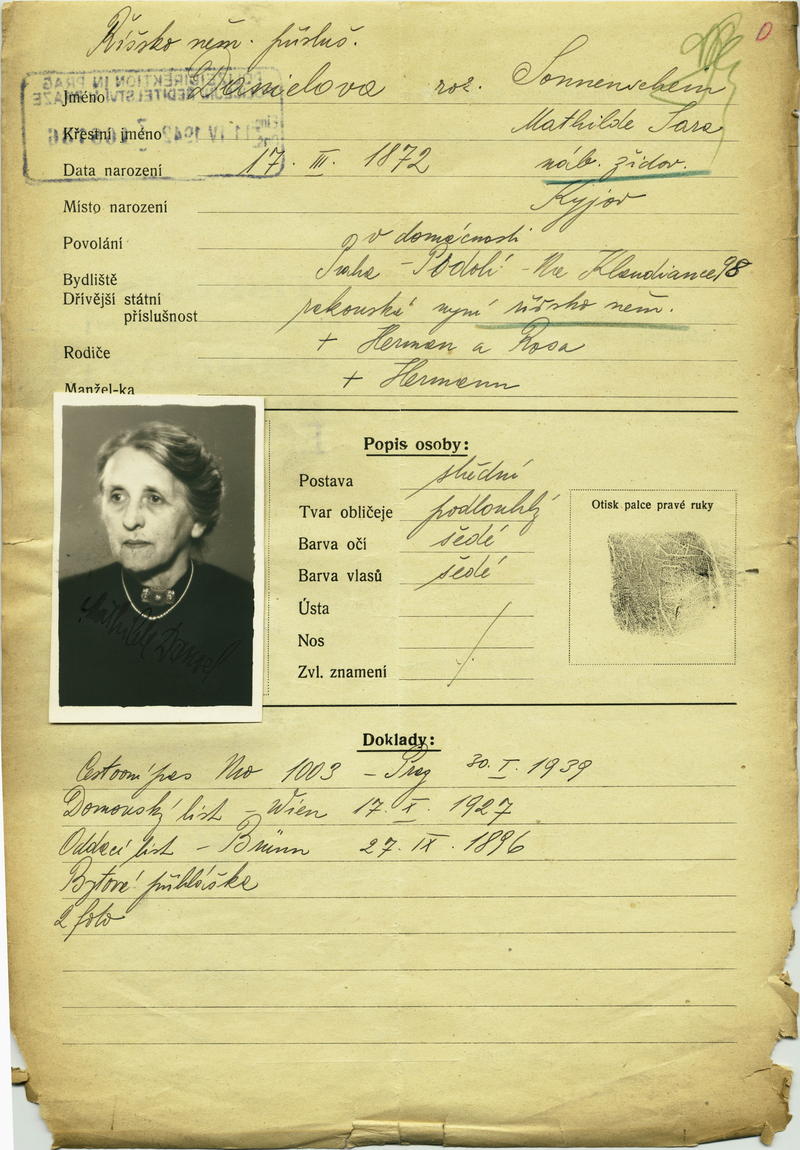 Říšsko něm. přísluš.
Jméno Danielová roz. Sonnenschein
Křestní jméno Mathilde Sara
Data narození 17. III. 1872 náb. židov.
Místo narození Kyjov
Povolání v domácnosti
Bydliště Praha - Podolí - Na Klaudiance 98
Dřívější státní
příslušnost rakouská nyní říšsko něm.
Rodiče + Herman a Rosa
Manžel-ka + Hermann
Popis osoby:
Postava střední
Tvar obličeje podlouhlý
Barva očí šedé
Barva vlasů šedé
Ústa
Nos
Zvl. znamení
Otisk palce pravé ruky
Mathilde Daniel
Doklady:
Cestovní pas No 1003 - Prag 30. I. 1939
Domovský list - Wien 17. X. 1927
Oddací list - Brünn 27. IX. 1896
Bytové přihláška
2 foto
POLIZEIDIREKTION IN PRAG
11 IV 1942